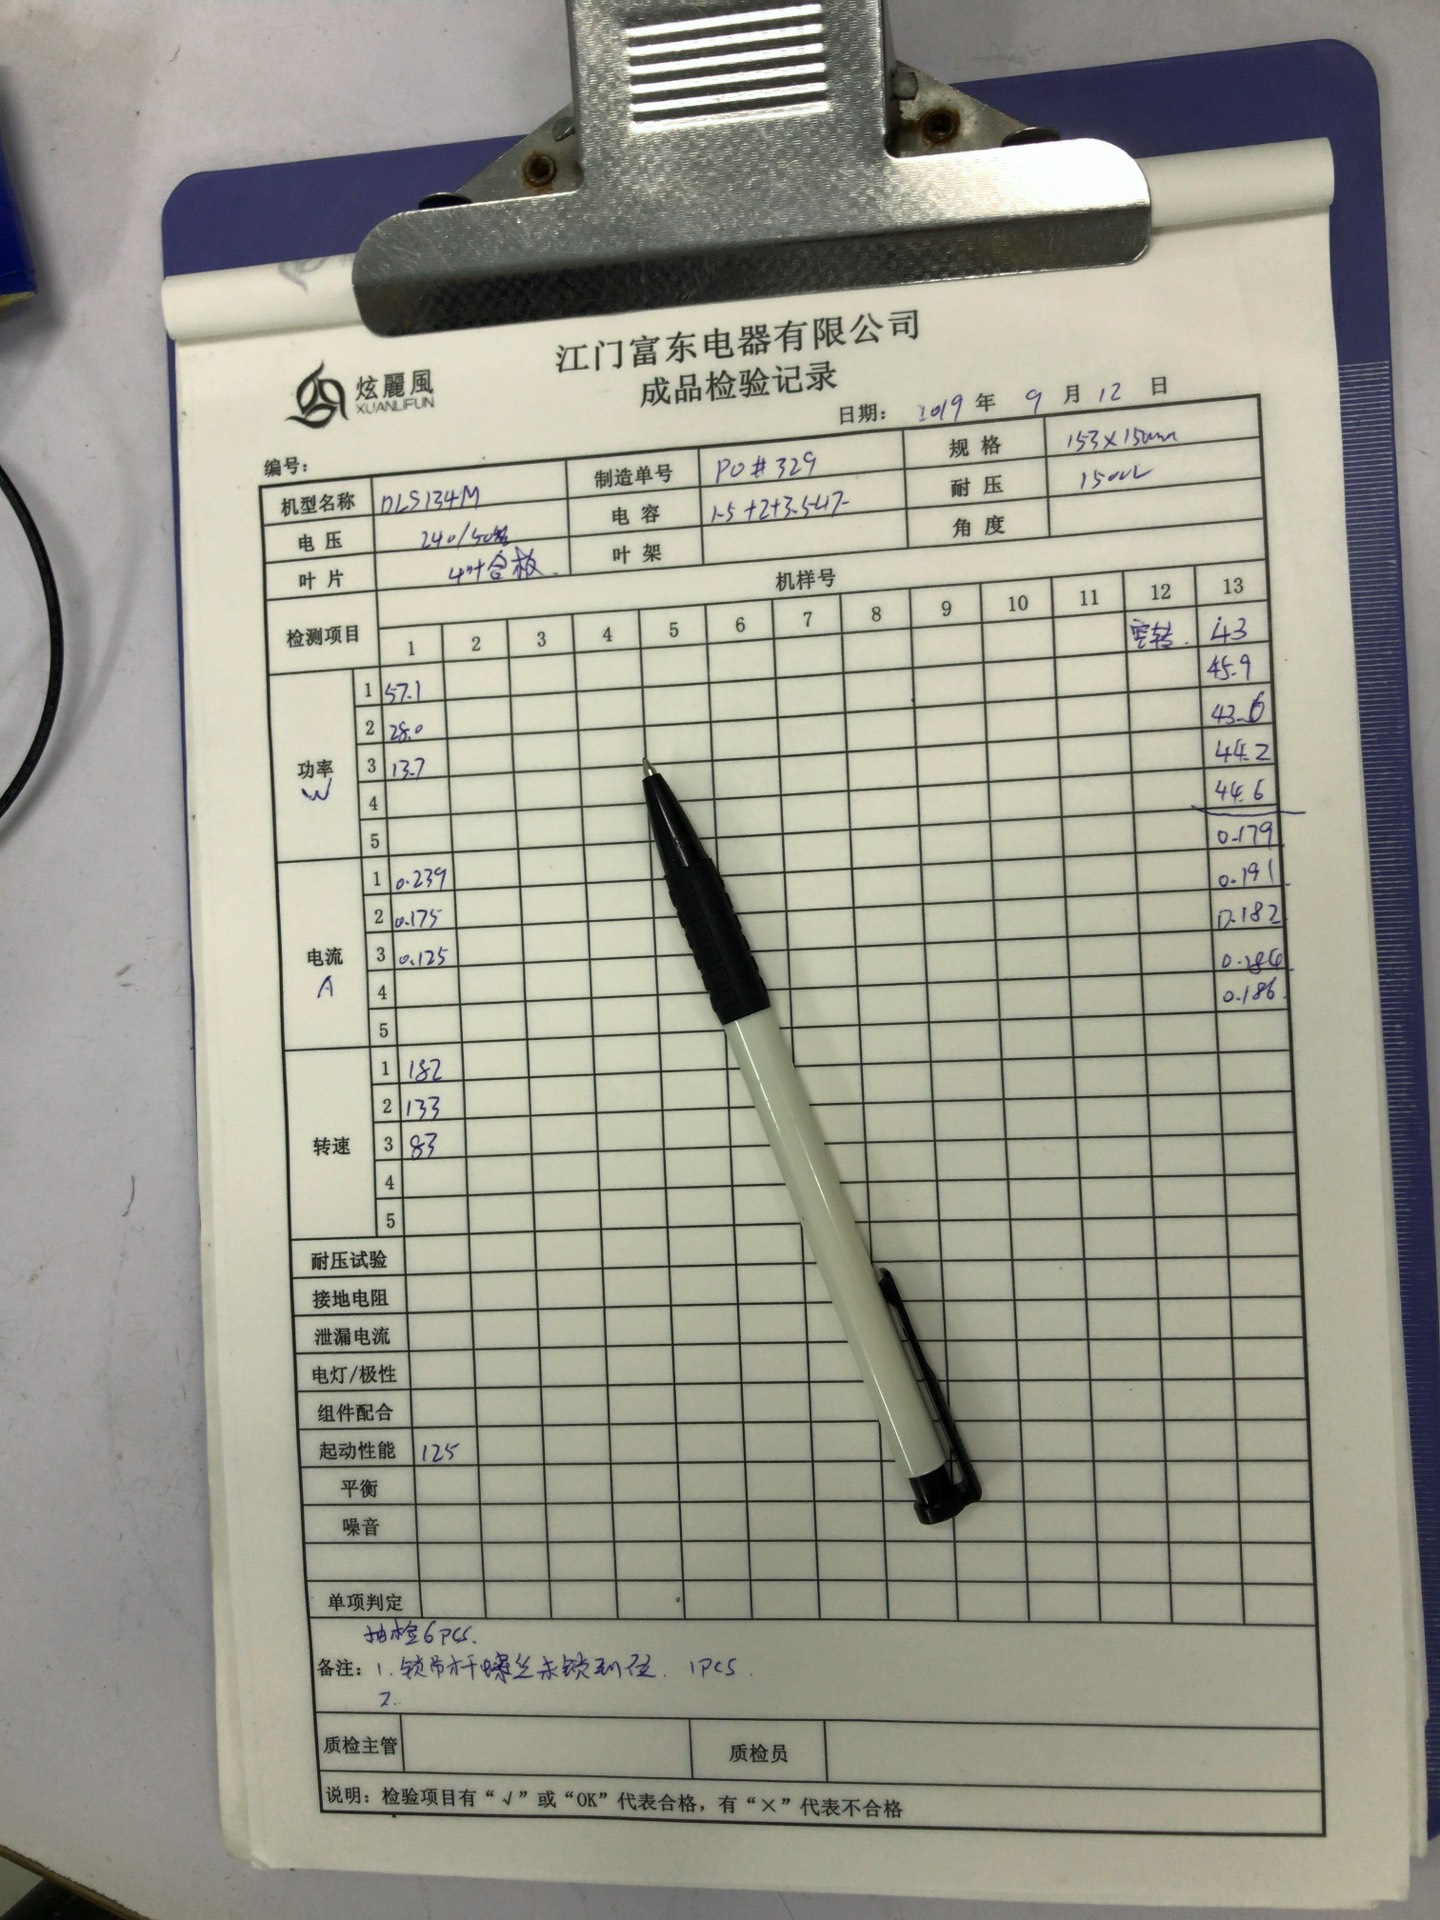 江门富东电器有限公司
炫麗風
XUANLIFUN
成品检验记录
日期: 2019 年 9 月 12 日
编号:
机型名称 DLS134M 制造单号 PO#329 规格 153×15mm
电压 240/50 电容 1.5+2+3.5 耐压 1500V
叶片 4叶合板. 叶架 角度
检测项目 机样号
1 2 3 4 5 6 7 8 9 10 11 12 13
空转. 43
功率 W 1 57.1 45.9
2 28.0 43.6
3 13.7 44.2
4 44.6
5 0.179
电流 A 1 0.239 0.191
2 0.175 0.182
3 0.125 0.184
4 0.186
5
转速 1 182
2 133
3 83
4
5
耐压试验
接地电阻
泄漏电流
电灯/极性
组件配合
起动性能 125
平衡
噪音
单项判定
抽检6pcs.
备注: 1. 锁吊杆螺丝未锁到位. 1PCS.
2.
质检主管 质检员
说明: 检验项目有“√”或“OK”代表合格, 有“×”代表不合格